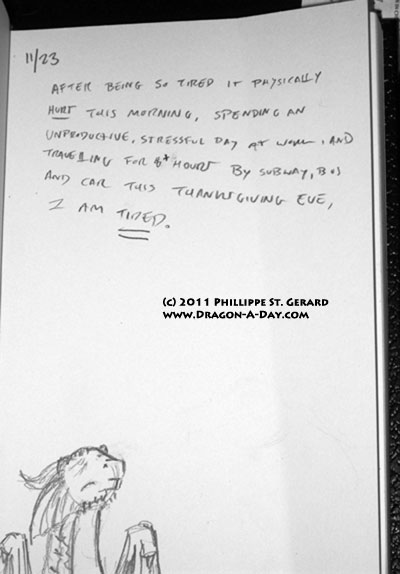 11/23
AFTER BEING SO TIRED IT PHYSICALLY
HURT THIS MORNING, SPENDING AN
UNPRODUCTIVE, STRESSFUL DAY AT WORK, AND
TRAVELLING FOR HOURS BY SUBWAY, BUS
AND CAR THIS THANKSGIVING EVE,
I AM TIRED.
(c) 2011 Phillippe St. Gerard
www.Dragon-A-Day.com